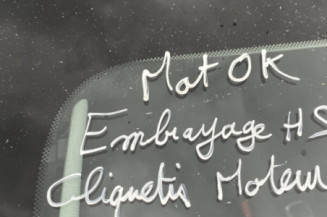 Mot OK
Embrayage HS
Cliquetis Moteur